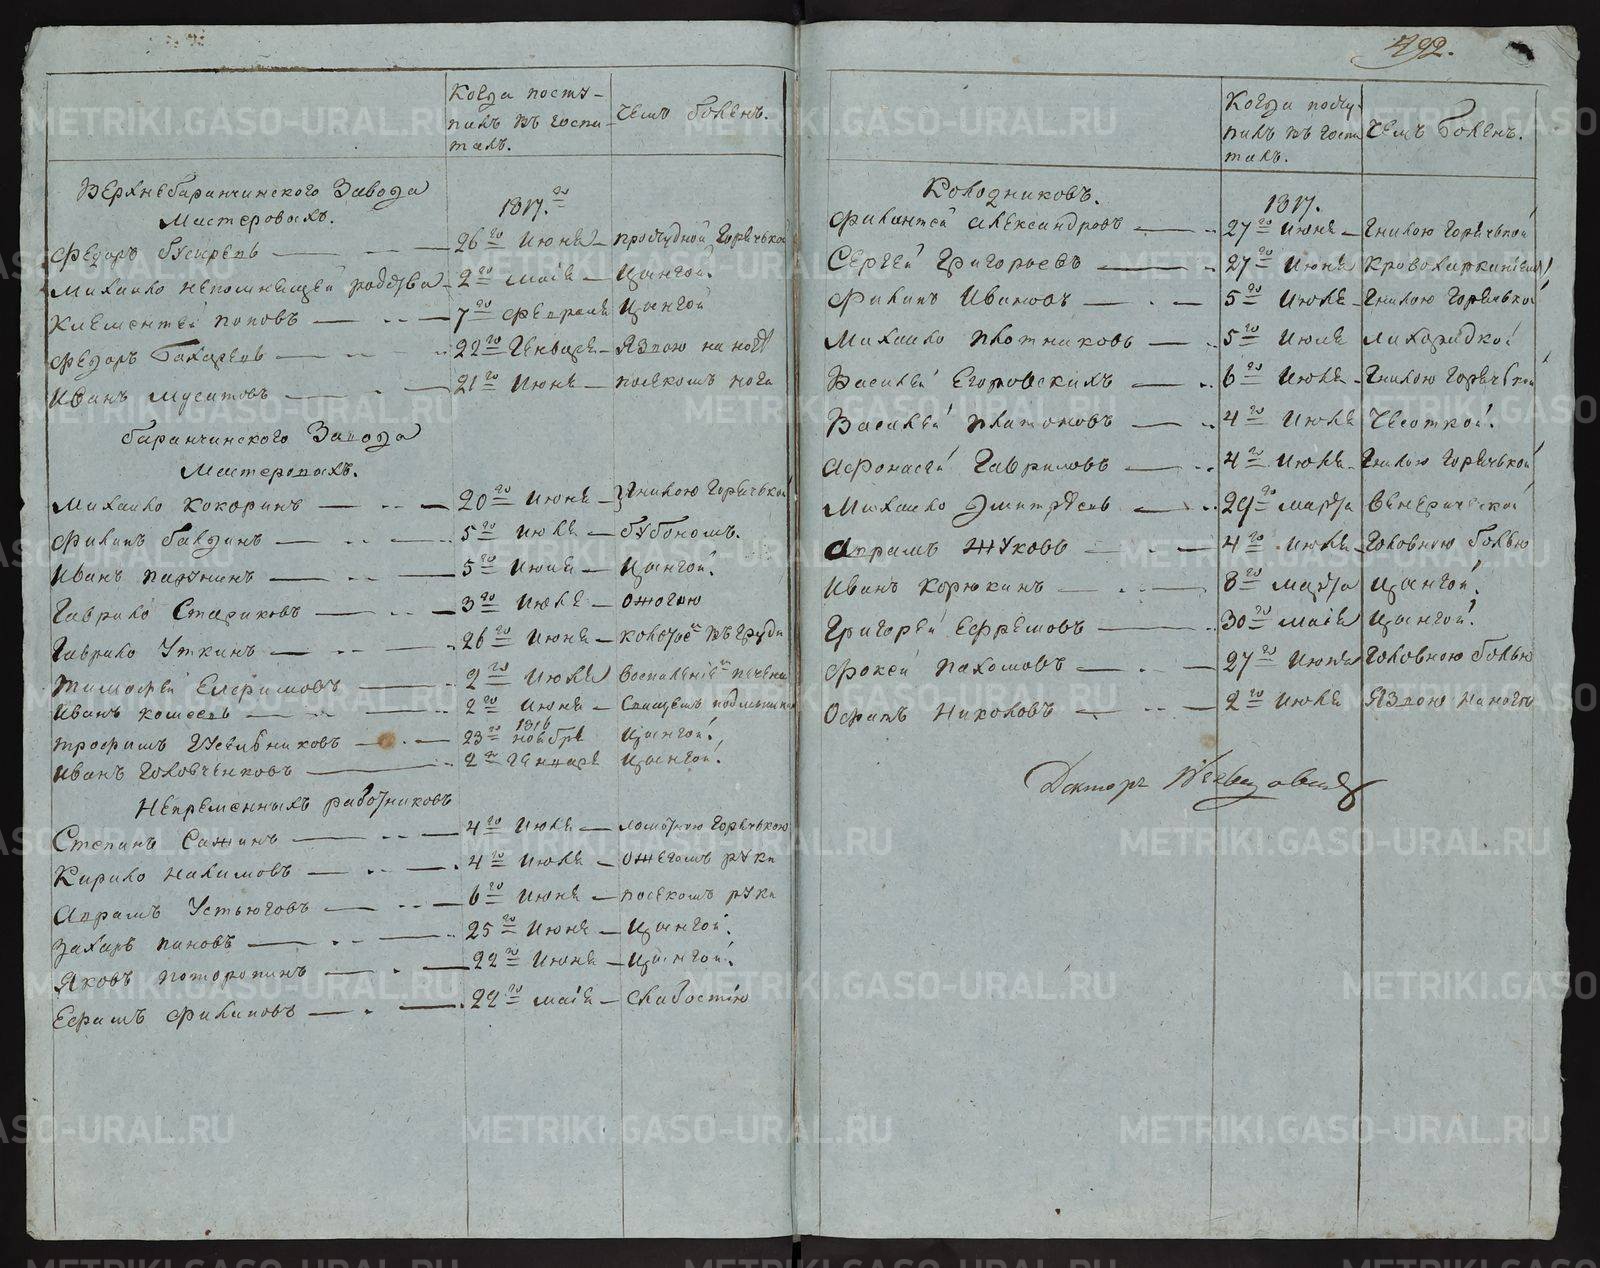 Когда посту-
пилъ въ госпи-
таль.
Чемъ боленъ.
Верхнебаранчинского Завода
Мастеровыхъ.
1817.го
Федоръ — 26го Июня — простудной горячькой
Михайло непомнящей родства — 2го маія — Цынгой.
Климентей Поповъ — 7го февраля Цынгой
Федоръ Бахаревъ — 22го Генваря — Язвою на ноге
Иванъ Мусатовъ — 21го Июня — посекомъ ноги
баранчинского Завода
Мастеровыхъ.
Михайло Кокоринъ — 20го Июня — Гнилою горячькой
Филипъ — 5го Июля — бубономъ.
Иванъ — 5го Июля — Цынгой.
Гаврило Стариковъ — 3го Июля — ожогою
Гаврило Уткинъ — 26го Июня — колотье въ груди
Тимофей Ефимовъ — 2го Июля воспаление печени
Иванъ Кошеевъ — 2го Июня —
Трофимъ — 23го 1816 ноября Цынгой.
Иванъ Головченковъ — 2го Генваря Цынгой.
Непременныхъ работниковъ
Степанъ Сажинъ — 4го Июля — горячькою
Кирило Налимовъ — 4го Июля — ожегомъ руки
Аврамъ Устюговъ — 6го Июня — посекомъ руки
Захаръ Пановъ — 25го Июня — Цынгой.
Яковъ Поторопинъ — 22го Июня — Цынгой.
Ефимъ Филиповъ — 22го маія — слабостію
492.
Когда посту-
пилъ въ госпи-
таль.
Чемъ боленъ.
Колодниковъ.
1817.
Филантей Александровъ — 27го Июня — Гнилою горячькой
Сергей Григорьевъ — 27го Июня Кровохарканіемъ
Филипъ Ивановъ — 5го Июля — Гнилою горячькой
Михайло Плотниковъ — 5го Июля лихорадкой
Василей Егоровскихъ — 6го Июля — Гнилою горячькой
Василей Платоновъ — 4го Июля Чесоткой.
Афонасей Гавриловъ — 4го Июля — Гнилою горячькой
Михайло Дмитревъ — 29го марта венерической
Аврамъ Жуковъ — 4го Июля — Головною болью
Иванъ Корюкинъ — 8го марта Цынгой.
Григорей Ефремовъ — 30го маія Цынгой.
Фокей Пахомовъ — 27го Июня Головною болью
Осипъ Николовъ — 2го Июля Язвою на ноге
Докторъ